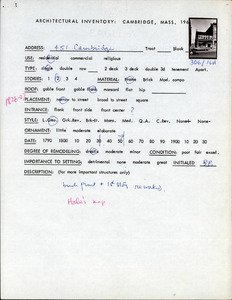 ARCHITECTURAL INVENTORY: CAMBRIDGE, MASS, 196
ADDRESS: 451 Cambridge Tract Block
306/160
USE: residential commercial religious
TYPE: single double row 2 deck 3 deck double 3d tenement Apart.
STORIES: 1 2 3 4 MATERIAL: frame Brick Mod. comps
ROOF: gable front gable flank mansard flat hip
PLACEMENT: narrow to street broad to street square
ENTRANCE: flank front side front center ?
STYLE: Gk.Rev. Brkt. Mans. Med. Q.A. C.Rev. None
ORNAMENT: little moderate elaborate
DATE: 1790 1800 10 20 30 40 50 60 70 80 90 1900 10 20 30
DEGREE OF REMODELING: drastic moderate minor CONDITION: poor fair excel.
IMPORTANCE TO SETTING: detrimental none moderate great INITIALED
DESCRIPTION: (for more important structures only)
brick front + 1st story
Hales map